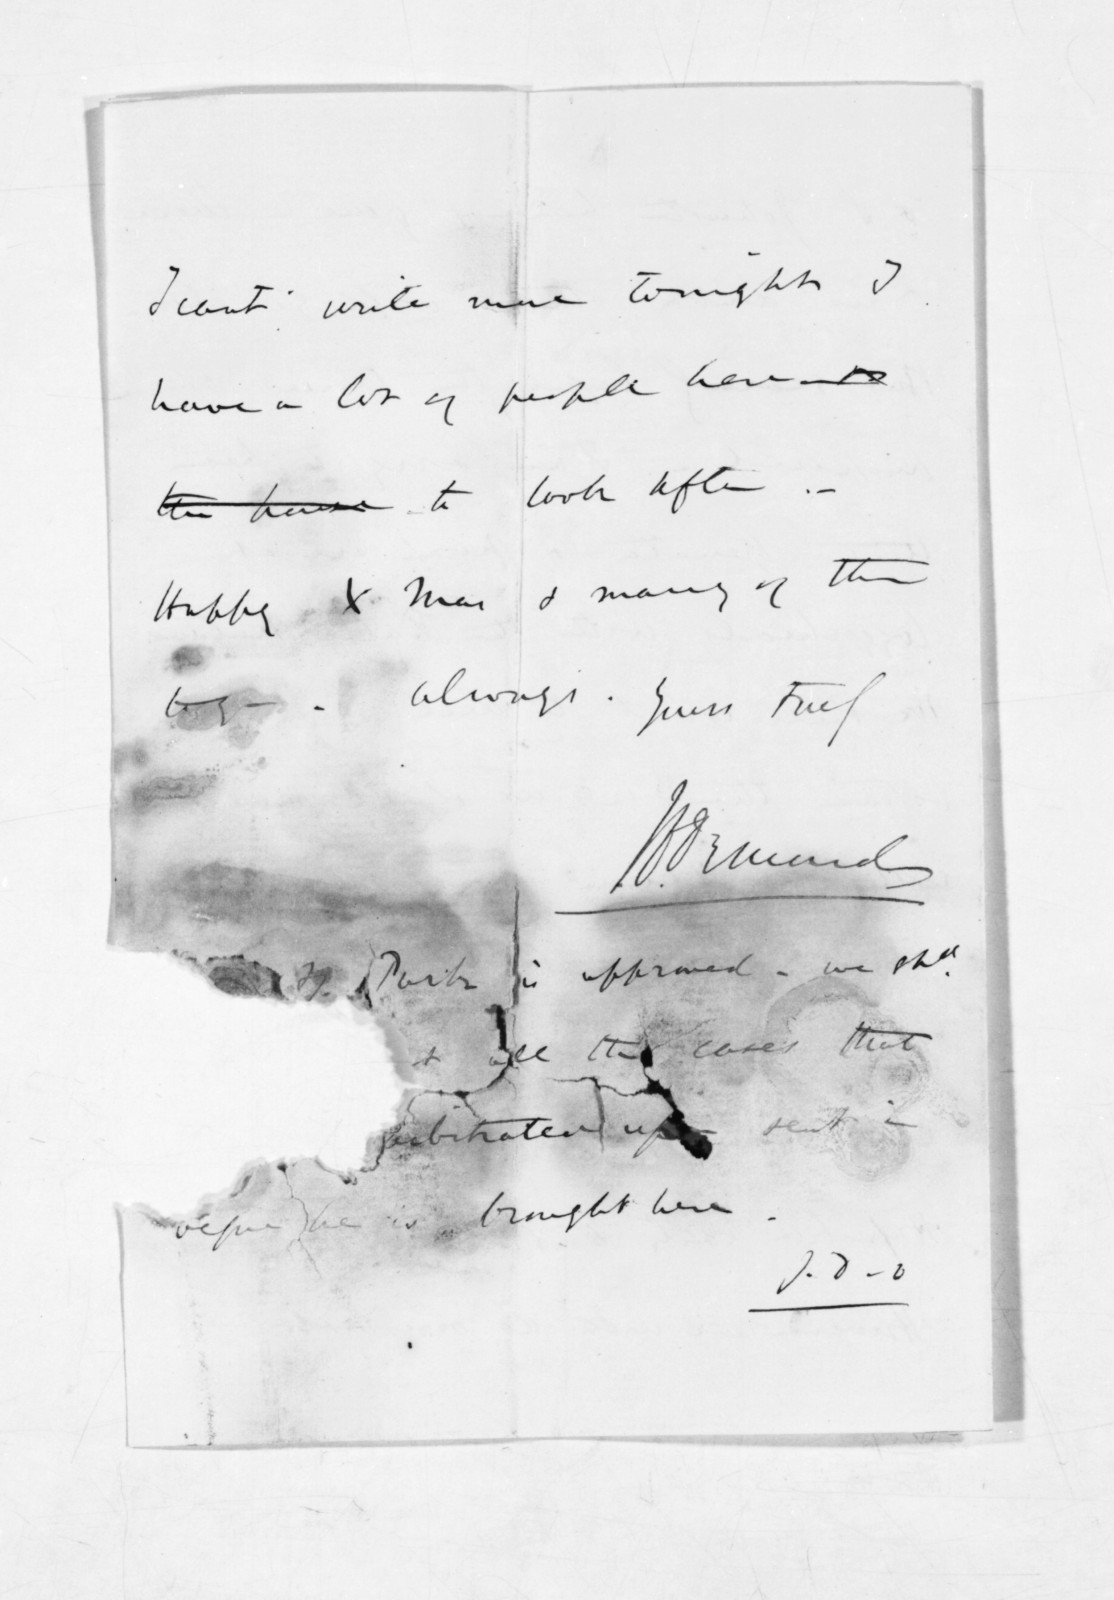 I cant write more tonight I
have a lot of people here to
the house to look after . -
Happy X Mas & many of them
to y - . always . Yours Truly
J. D. Ormond
If Park is approved - we shd.
all the cases that
arbitrated upon sent in
before he is brought here .
J. D. O